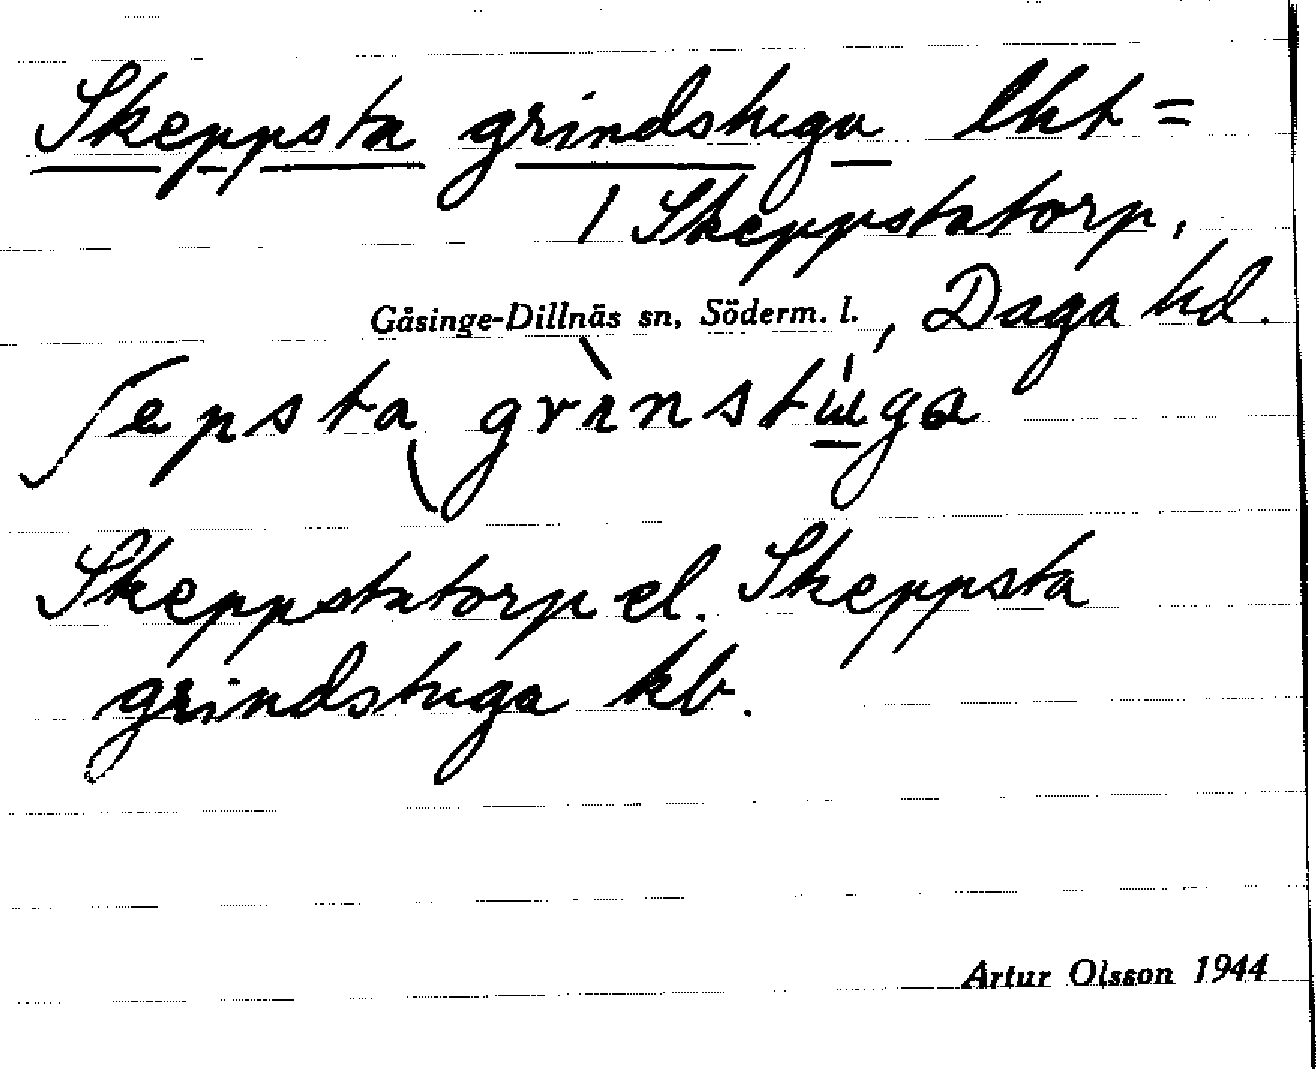 Skeppsta grindstuga lht =
/ Skeppstatorp,
Gåsinge-Dillnäs sn, Söderm. l., Daga hd.
ʃepsta grìnstɯ́ga
Skeppstatorp el. Skeppsta
grindstuga kb.
Artur Olsson 1944